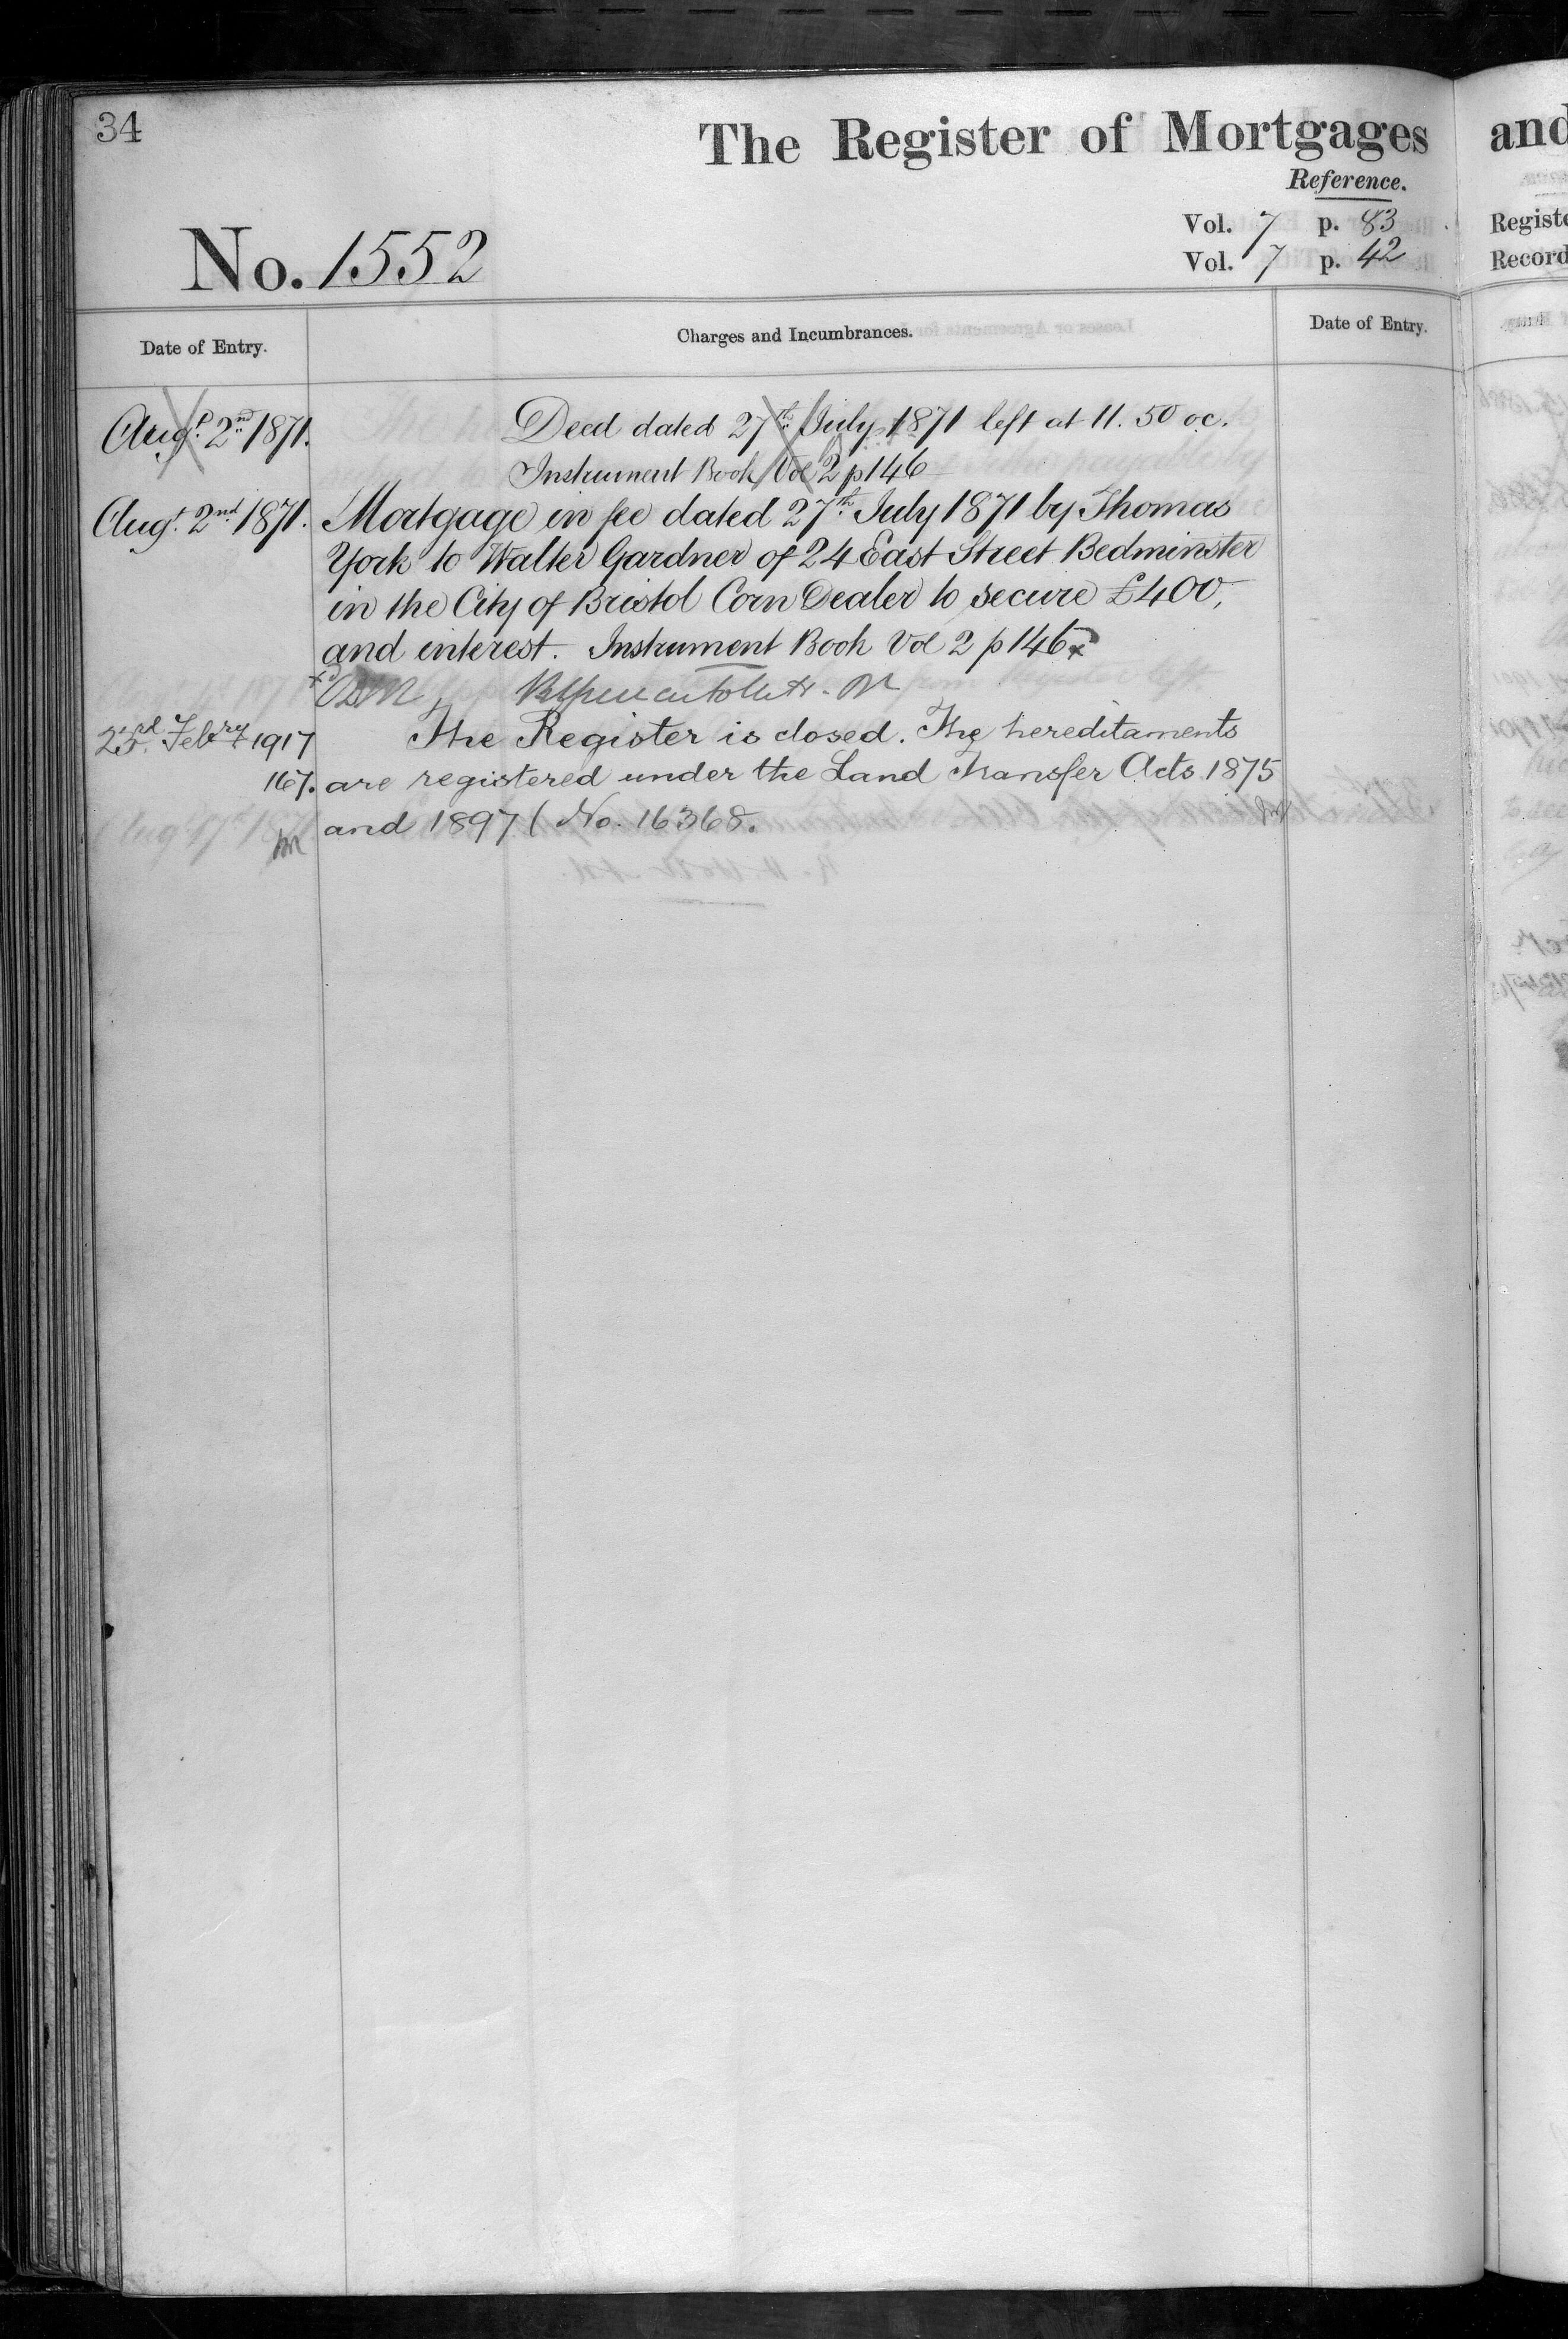 34
The Register of Mortgages
and
Reference.
Vol. 7 p. 83
Vol. 7 p. 42
No. 1552
Date of Entry.
Charges and Incumbrances.
Date of Entry.
Augt. 2nd 1871.
Deed dated 27th July 1871 left at 11.50 oc.
Instrument Book Vol 2 p 146
Augt. 2nd 1871.
Mortgage in fee dated 27th July 1871 by Thomas
York to Walter Gardner of 24 East Street Bedminster
in the City of Bristol Corn Dealer to secure £400,
and interest. Instrument Book Vol 2 p 146
Febry 1917
167.
The Register is closed. The hereditaments
are registered under the Land Transfer Acts 1875
and 1897 (No. 16368.